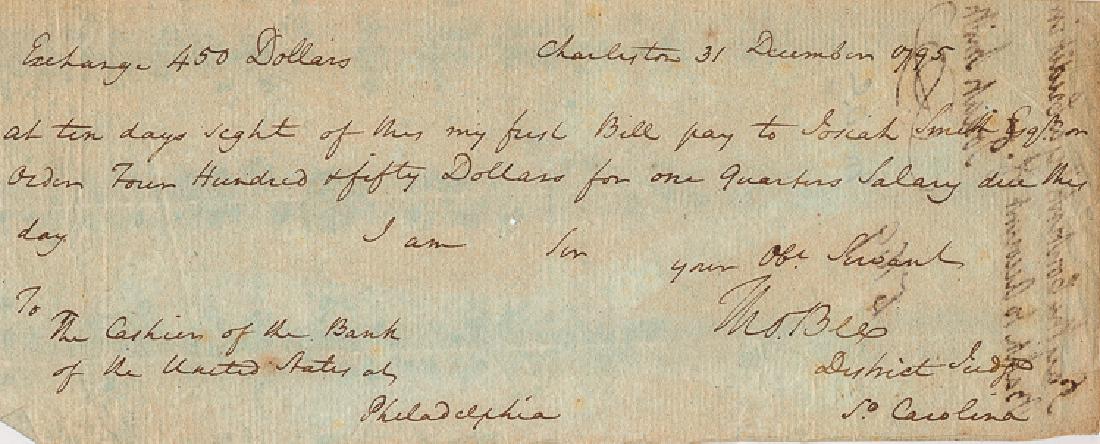 Exchange 450 Dollars Charleston 31 December 1795
at ten days sight of this my first Bill pay to Josiah Smith Esqr. or
Order Four Hundred & fifty Dollars for one Quarters Salary due this
day I am Sir your Obt. Servant
Tho. Bee
District Judge
So. Carolina
To
The Cashier of the Bank
of the United States at
Philadelphia